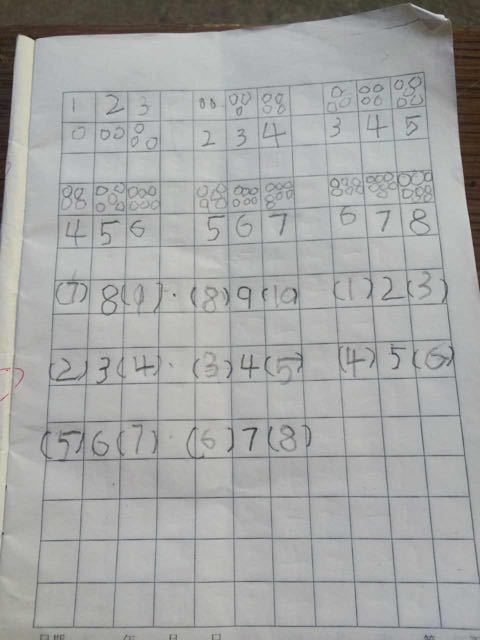 1 2 3
2 3 4 3 4 5
4 5 6 5 6 7 6 7 8
(7) 8 (9) · (8) 9 (10 (1) 2 (3)
(2) 3 (4) · (3) 4 (5) (4) 5 (6)
(5) 6 (7) · (6) 7 (8)
年 月 日